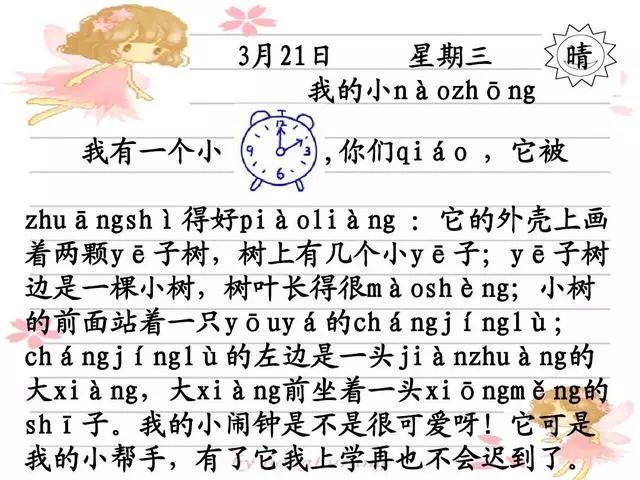 3月21日 星期三 晴
我的小nàozhōng
我有一个小 12 3 6 9 ,你们qiáo，它被
zhuāngshì得好piàoliàng：它的外壳上画
着两颗yē子树，树上有几个小yē子；yē子树
边是一棵小树，树叶长得很màoshèng；小树
的前面站着一只yōuyá的chángjǐnglù；
chángjǐnglù的左边是一头jiànzhuàng的
大xiàng，大xiàng前坐着一头xiōngměng的
shī子。我的小闹钟是不是很可爱呀！它可是
我的小帮手，有了它我上学再也不会迟到了。